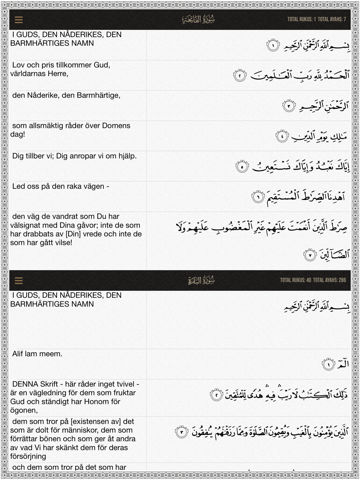 سُورَةُ الفَاتِحَةِ
TOTAL RUKUS: 1 TOTAL AYAHS: 7
I GUDS, DEN NÅDERIKES, DEN
BARMHÄRTIGES NAMN
بِسْمِ اللَّهِ الرَّحْمَٰنِ الرَّحِيمِ ۝١
Lov och pris tillkommer Gud,
världarnas Herre,
الْحَمْدُ لِلَّهِ رَبِّ الْعَالَمِينَ ۝٢
den Nåderike, den Barmhärtige,
الرَّحْمَٰنِ الرَّحِيمِ ۝٣
som allsmäktig råder över Domens
dag!
مَالِكِ يَوْمِ الدِّينِ ۝٤
Dig tillber vi; Dig anropar vi om hjälp.
إِيَّاكَ نَعْبُدُ وَإِيَّاكَ نَسْتَعِينُ ۝٥
Led oss på den raka vägen -
اهْدِنَا الصِّرَاطَ الْمُسْتَقِيمَ ۝٦
den väg de vandrat som Du har
välsignat med Dina gåvor; inte de som
har drabbats av [Din] vrede och inte de
som har gått vilse!
صِرَاطَ الَّذِينَ أَنْعَمْتَ عَلَيْهِمْ غَيْرِ الْمَغْضُوبِ عَلَيْهِمْ وَلَا
الضَّالِّينَ ۝٧
سُورَةُ البَقَرَةِ
TOTAL RUKUS: 40 TOTAL AYAHS: 286
I GUDS, DEN NÅDERIKES, DEN
BARMHÄRTIGES NAMN
بِسْمِ اللَّهِ الرَّحْمَٰنِ الرَّحِيمِ
Alif lam meem.
الٓمٓ ۝١
DENNA Skrift - här råder inget tvivel -
är en vägledning för dem som fruktar
Gud och ständigt har Honom för
ögonen,
ذَٰلِكَ الْكِتَٰبُ لَا رَيْبَ ۛ فِيهِ ۛ هُدًى لِّلْمُتَّقِينَ ۝٢
dem som tror på [existensen av] det
som är dolt för människor, dem som
förrättar bönen och som ger åt andra
av vad Vi har skänkt dem för deras
försörjning
الَّذِينَ يُؤْمِنُونَ بِالْغَيْبِ وَيُقِيمُونَ الصَّلَوٰةَ وَمِمَّا رَزَقْنَٰهُمْ يُنفِقُونَ ۝٣
och dem som tror på det som har